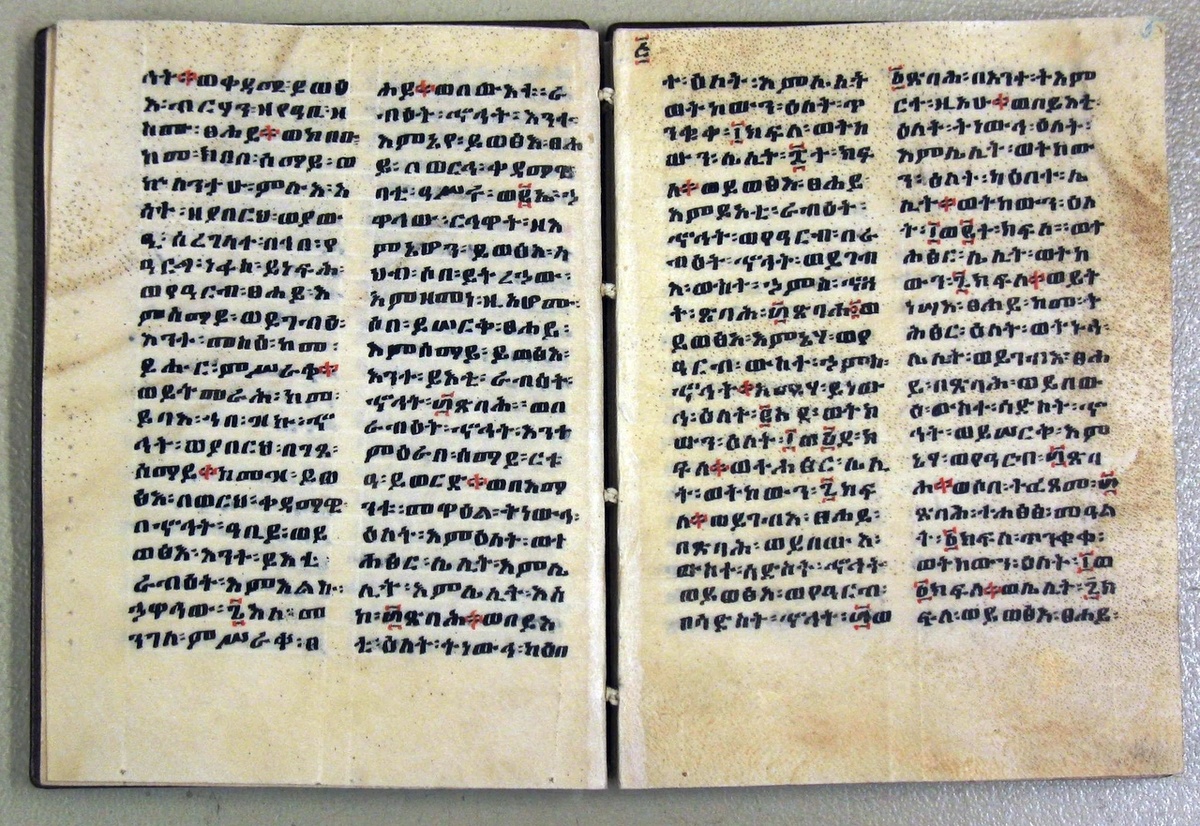 ሳት፡ወቀዳሚ፡ይወፅ
እ፡ብርሃን፡ዘየዓቢ፡ዘ
ስሙ፡ፀሐይ፡ወክበቡ፡
ከመ፡ክበበ፡ሰማይ፡ወ
ኵለንታሁ፡ምሉእ፡እ
ሳት፡ዘያበርህ፡ወያው
ዒ፡ሰረገላተ፡በኀበ፡የ
ዓርግ፡ነፋስ፡ይነፍሕ፡
ወየዓርብ፡ፀሐይ፡እ
ምሰማይ፡ወይገብእ፡
እንተ፡መስዕ፡ከመ፡
ይሑር፡ምሥራቀ፡
ወይትመራሕ፡ከመ፡
ይባእ፡ኀበ፡ዝኩ፡ኆ
ኅት፡ወያበርህ፡በገጸ፡
ሰማይ፡ከመዝ፡ይወ
ፅእ፡በወርኅ፡ቀዳማዊ፡
በኆኅት፡ዓቢይ፡ወይ
ወፅእ፡እንተ፡ይእቲ፡
ራብዕት፡እምእልኩ፡
ኃዋኅው፡፮እለ፡መ
ንገለ፡ምሥራቀ፡ፀ
ሐይ፡ወበውእቱ፡ራ
ብዕት፡ኆኅት፡እንተ፡
እምኔሃ፡ይወፅእ፡ፀሐ
ይ፡በወርኅ፡ቀዳማዊ
ባቲ፡ዓሥሩ፡ወ፪ቱ፡ኃ
ዋኅው፡ርኅዋት፡ዘእ
ምኔሆን፡ይወፅእ፡ላ
ህብ፡ሶበ፡ይትረኃው፡
እምዘመነ፡ዚአሆሙ፡
ሶበ፡ይሠርቅ፡ፀሐይ፡
እምሰማይ፡ይወፅእ፡
እንተ፡ይእቲ፡ራብዕት፡
ኆኅት፡፴ጽባሐ፡ወበ
ራብዕት፡ኆኅት፡እንተ
ምዕራበ፡ሰማይ፡ርቱ
ዓ፡ይወርድ፡ወበእማ
ንቱ፡መዋዕል፡ትነውኅ፡
ዕለት፡እምዕለት፡ወተ
ሐፅር፡ሌሊት፡እምሌ
ሊት፡እምሌሊት፡እስ
ከ፡፴ጽባሕ፡ወበይእ
ቲ፡ዕለት፡ትነውኅ፡ካዕበ
ት፡ዕለት፡እምሌሊት
ወትከውን፡ዕለት፡ጥ
ንቁቀ፡፲ክፍለ፡ወትከ
ውን፡ሌሊት፡፰ተ፡ክፍ
ለ፡ወይወፅእ፡ፀሐይ፡
እምይእቲ፡ራብዕት፡
ኆኅት፡ወየዓርብ፡በራ
ብዕት፡ኆኅት፡ወይገብ
እ፡ውስተ፡ኃምስ፡ኆኅ
ት፡ጽባሕ፡፴ጽባሐ፡ወ
ይወፅእ፡እምኔሃ፡ወየ
ዓርብ፡ውስተ፡ኃምስ፡
ኆኅት፡አሜሃ፡ይነው
ኅ፡ዕለት፡፪እደ፡ወትከ
ውን፡ዕለት፡፲ወ፩ደ፡ክ
ፍለ፡ወተሐፅር፡ሌሊ
ት፡ወትከውን፡፯ክፍ
ለ፡ወይገብእ፡ፀሐይ፡
በጽባሕ፡ወይበውእ፡
ውስተ፡ሳድስት፡ኆኅት
ወይወፅእ፡ወየዓርብ፡
በሳድስት፡ኆኅት፡፴ወ
፩ጽባሐ፡በእንተ፡ትእም
ርተ፡ዚአሁ፡ወበይእቲ፡
ዕለት፡ትነውኅ፡ዕለት፡
እምሌሊት፡ወትከው
ን፡ዕለት፡ካዕበተ፡ሌ
ሊት፡ወትከውን፡ዕለ
ት፡፲ወ፪ተ፡ክፍለ፡ወተ
ሐፅር፡ሌሊት፡ወትከ
ውን፡፮ክፍለ፡ወይት
ነሣእ፡ፀሐይ፡ከመ፡ት
ሕፅር፡ዕለት፡ወትኑኅ፡
ሌሊት፡ወይገብእ፡ፀሐ
ይ፡በጽባሕ፡ወይበው
እ፡ውስተ፡ሳድስት፡ኆ
ኅት፡ወይሠርቅ፡እም
ኔሃ፡ወየዓርብ፡፴ጽባ
ሐ፡ወሶበ፡ተፈጸመ፡፴
ጽባሕ፡ተሐፅፅ፡መዓል
ት፡፩ክፍለ፡ጥንቁቀ፡
ወትከውን፡ዕለት፡፲ወ
፩ክፍለ፡ወሌሊት፡፯ክ
ፍለ፡ወይወፅእ፡ፀሐይ፡